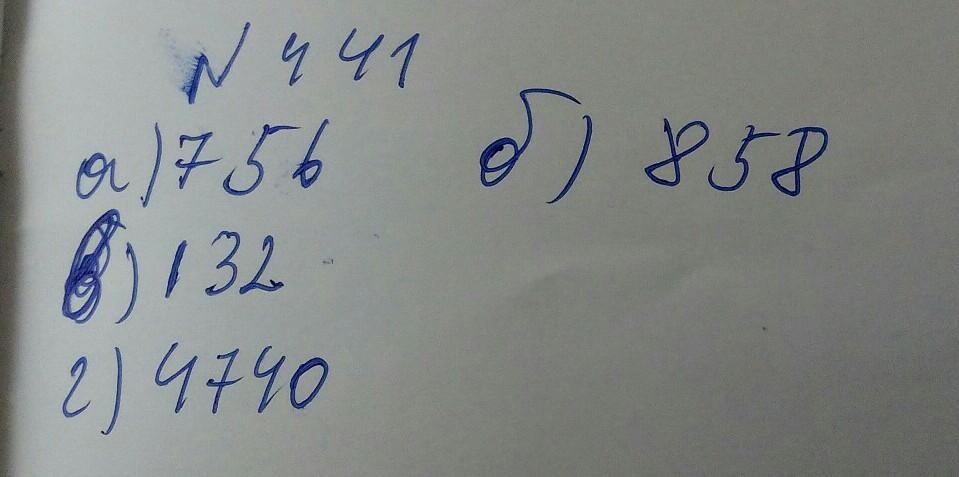 N 441
а) 756 б) 858
в) 132
г) 4740